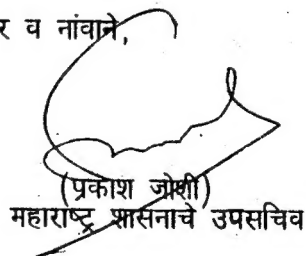 र व नांवाने,
(प्रकाश जोशी)
महाराष्ट्र शासनाचे उपसचिव